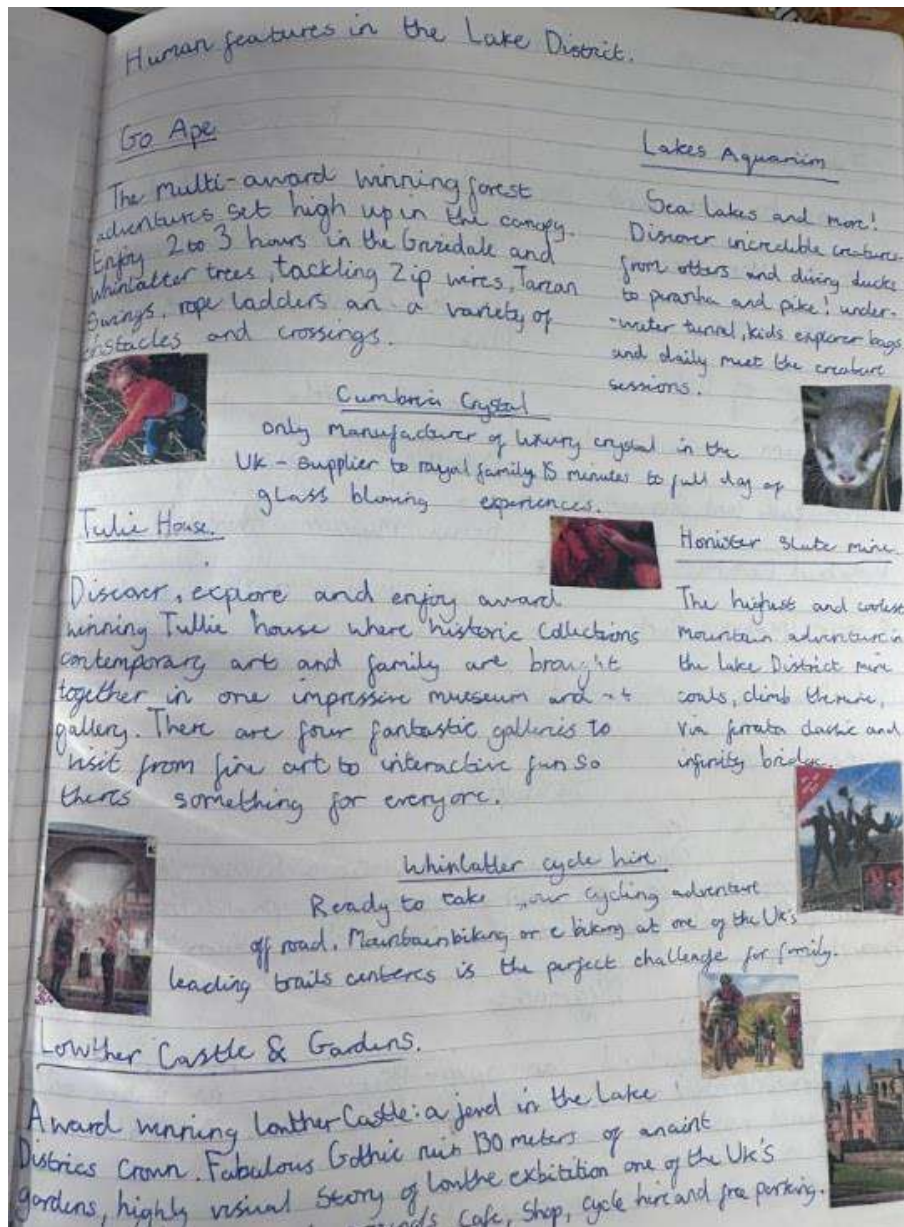 Human features in the Lake District.
Go Ape
The multi-award winning forest
adventures set high up in the canopy.
Enjoy 2 to 3 hours in the Grizedale and
whinlatter trees, tackling Zip wires, Tarzan
Swings, rope ladders an a variety of
obstacles and crossings.
Lakes Aquarium
Sea lakes and more!
Discover incredible creatures
from otters and diving ducks
to piranha and pike! under-
-water tunnel, kids explorer bags
and daily meet the creature
sessions.
Cumbria Crystal
only manufacturer of luxury crystal in the
UK - supplier to royal family 15 minutes to full day of
glass blowing experiences.
Tulie House.
Discover, explore and enjoy award
winning Tullie house where historic collections
contemporary art and family are brought
together in one impressive museum and
gallery. There are four fantastic galleries to
visit from fine art to interactive fun so
theres something for everyone.
Honister slate mine
The highest and coolest
mountain adventure in
the lake District mine
climb the mine,
via ferrata classic and
infinity bridge.
Whinlatter cycle hire
Ready to take your cycling adventure
off road. Mountainbiking or e biking at one of the UK's
leading trails centeres is the perfect challenge for family.
Lowther Castle & Gardens.
Award winning lowther Castle: a jewel in the Lake
Districs Crown. Fabulous Gothic ruin 130 meters of
gardens, highly visual Story of lowthe exbitition one of the UK's
Cafe, Shop, cycle hire and free parking.